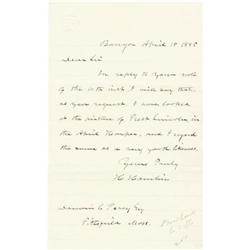 Bangor April 18 1885
Dear Sir
In reply to yours note
of the 10th inst, I will say that,
at your request, I have looked
at the picture of Prest Lincoln in
the April Harper, and I regard
the same as a very good likeness.
Yours Truly
H Hamlin
C Percy Esq
Mass.